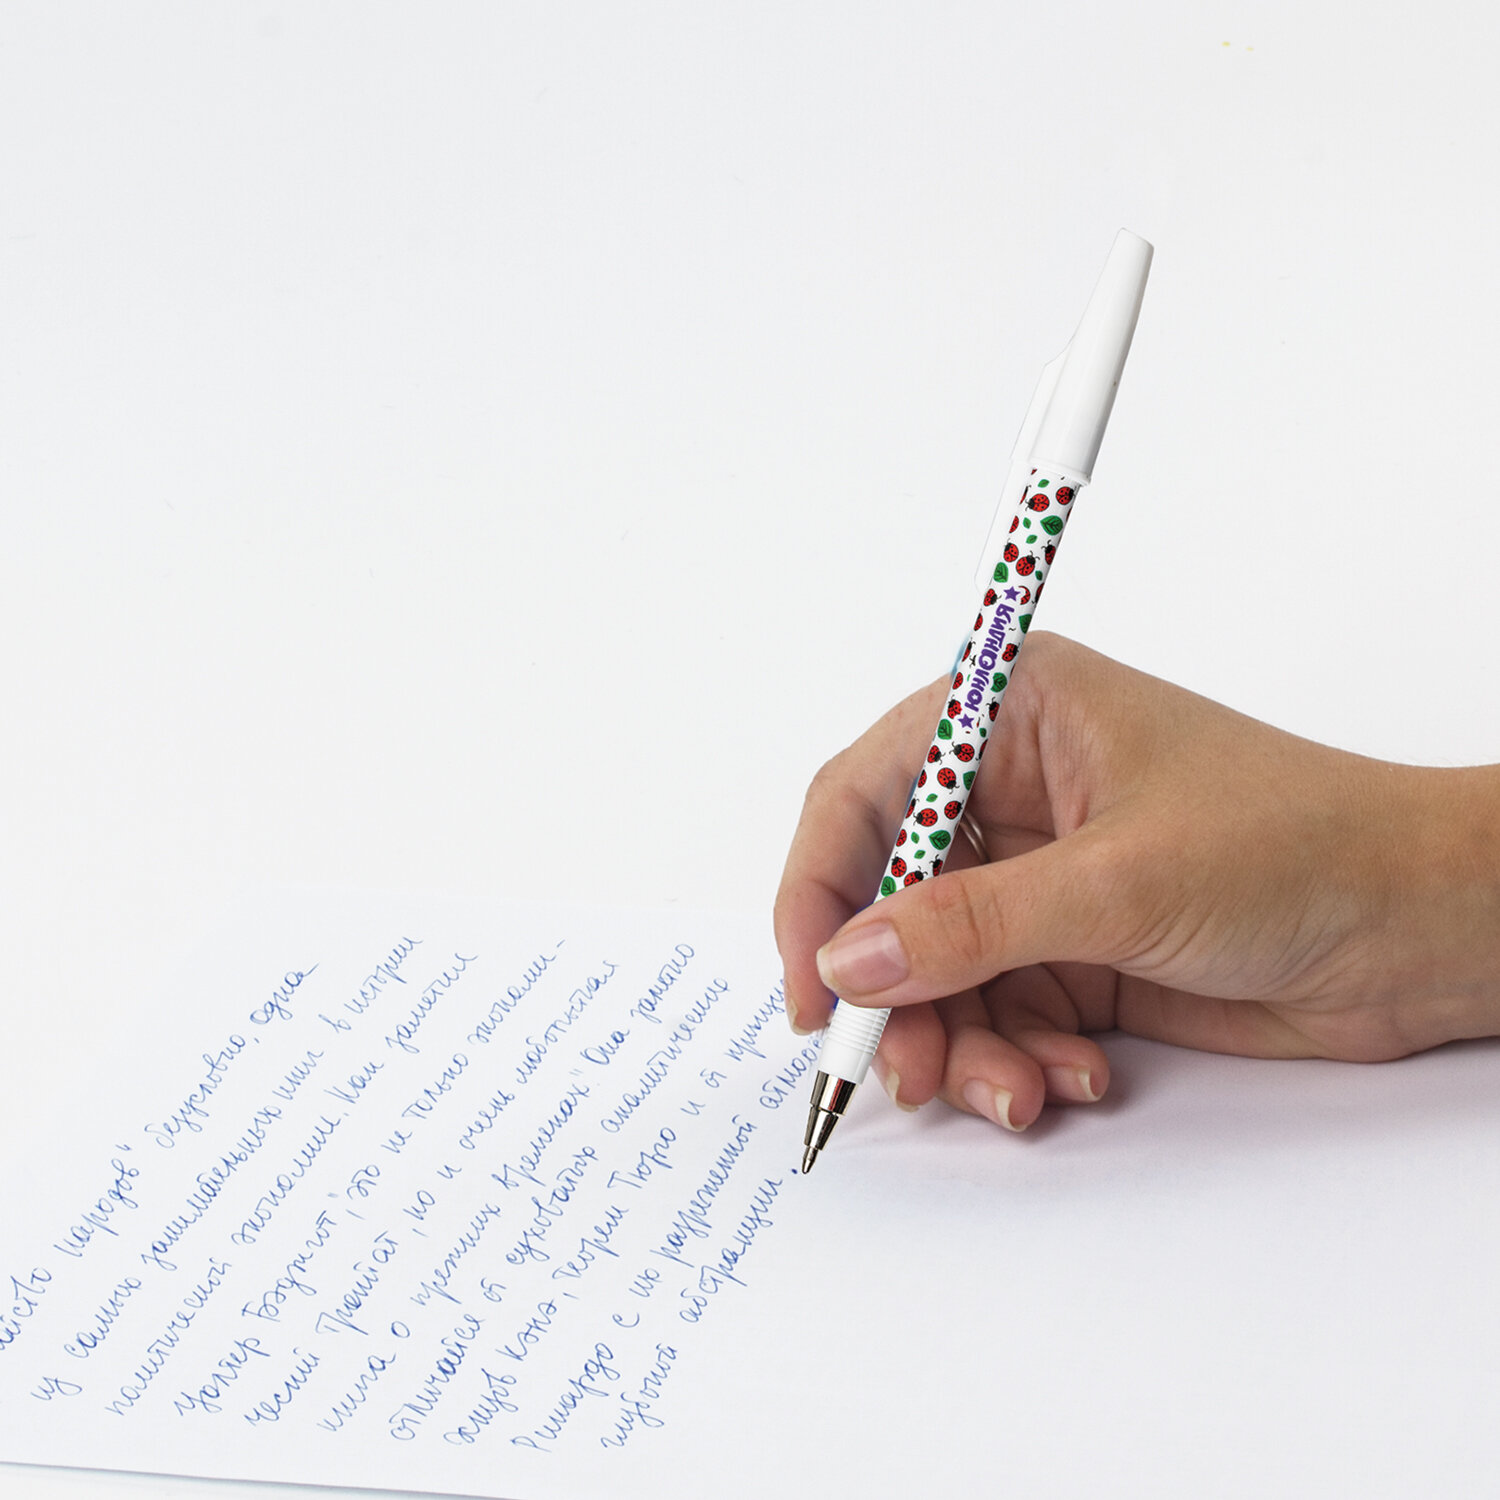 ЮНЛАНДИЯ
...йство народов" безусловно, одна
из самых занимательных книг в истории
политической экономии. Как заметил
Уолтер Бэджгот, "это не только экономи-
ческий трактат, но и очень любопытная
книга о прежних временах". Она заметно
отличается от суховатых аналитических
экскурсов Кэнэ, Тюрго и от принцип
Рикардо с их разреженной атмосф
глубокой абстракции.